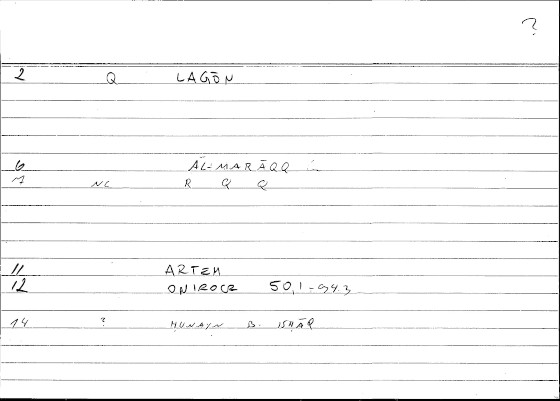 ?
2 Q LAGŌN
6 AL-MARĀQQ
7 NC R Q Q
11 ARTEM
12 ONIROCR 50,1-94.3
14 ? HUNAYN B. ISHĀQ